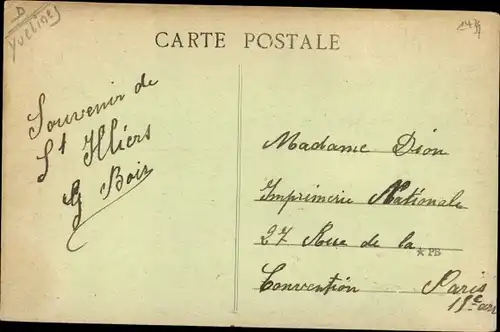 D
Yvelines
CARTE POSTALE
Souvenir de
St Illiers
G Bois
Madame Dion
Imprimerie Nationale
27 Rue de la
★ PB
Convention Paris
15e arr